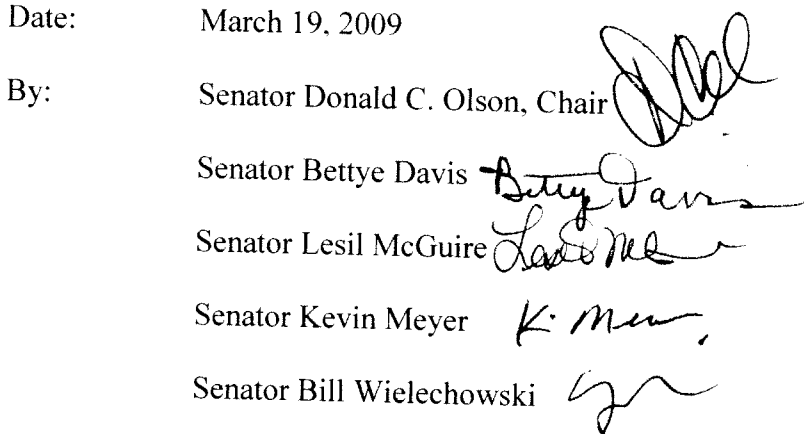 Date: March 19, 2009
By: Senator Donald C. Olson, Chair
Senator Bettye Davis Bettye Davis
Senator Lesil McGuire
Senator Kevin Meyer
Senator Bill Wielechowski